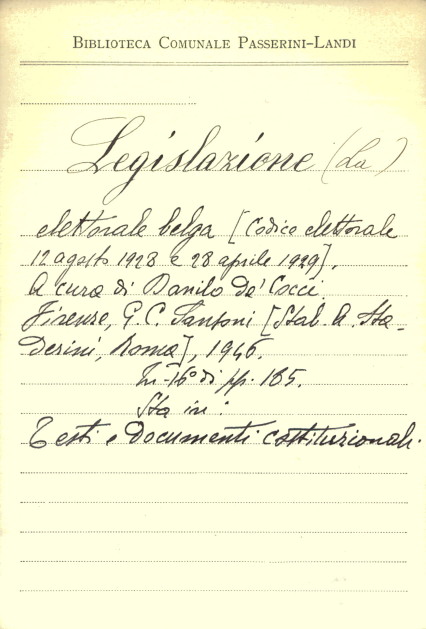 BIBLIOTECA COMUNALE PASSERINI-LANDI
Legislazione (La)
elettorale belga [Codice elettorale
12 agosto 1928 e 28 aprile 1929].
A cura di Danilo de' Cocci.
Firenze, G. C. Sansoni [Stab. A. Sta-
derini, Roma], 1946.
In-16° di pp. 185.
Sta in:
Testi e documenti costituzionali.